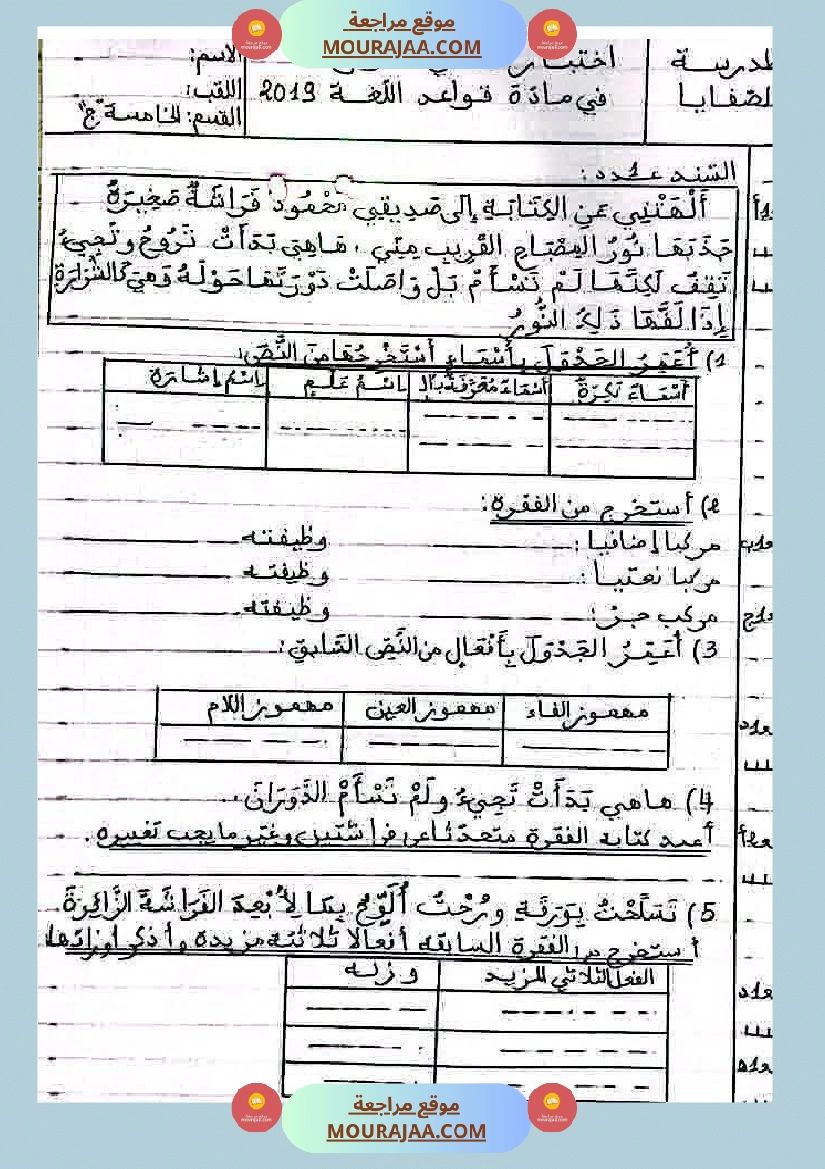 موقع مراجعة
MOURAJAA.COM
الاسم:
اللقب:
القسم: الخامسة "ج"
اختبار
في مادة قواعد اللغة 2019
المدرسة
الصفايا
السند عدد1:
أَلْهَتْنِي عَنِ الكِتَابَةِ إِلى صَدِيقِي مَحْمُود فَرَاشَةٌ صَغِيرَةٌ
جَذَبَهَا نُورُ المِصْبَاحِ القَرِيبِ مِنِّي، هَاهِيَ بَدَأَتْ تَرُوحُ وتَجِيءُ
تَقِفُ لَكِنَّهَا لَمْ تَسْأَمْ بَلْ وَاصَلَتْ دَوَرَانَهَا حَوْلَهُ وَهِيَ كَالشَّرَارَةِ
إِذَا لَفَّهَا ذَلِكَ النُّورُ
1) أُعَمِّرُ الجَدْوَلَ بِأَسْمَاءٍ أَسْتَخْرِجُهَا مِنَ النَّصِّ:
أَسْمَاءٌ نَكِرَةٌ
أَسْمَاءٌ مُعَرَّفَةٌ بِالـ
اسْمُ عَلَمٍ
اِسْمُ إِشَارَةٍ
2) أستخرج من الفقرة:
مركبا إضافيا: وظيفته
مركبا نعتيا: وظيفته
مركب جر: وظيفته
3) أُعَمِّرُ الجَدْوَلَ بِأَفْعَالٍ من النَّصِّ السَّابِقِ:
مهموز الفاء
مهموز العين
مهموز اللام
4) هاهي بَدَأَتْ تَجِيءُ ولَمْ تَسْأَمْ الدَّوَرَانَ.
أعيد كتابة الفقرة متحدثا عن فراشتين وغير ما يجب تغييره.
5) تَسَلَّحْتُ بِوَرَقَةٍ ورُحْتُ أُلَوِّحُ بِهَا لِأُبْعِدَ الفَرَاشَةَ الزَّائِرَةَ.
أستخرج من الفقرة السابقة أفعالا ثلاثية مزيدة وأذكر أوزانها
الفعل الثلاثي المزيد
وزنه
موقع مراجعة
MOURAJAA.COM